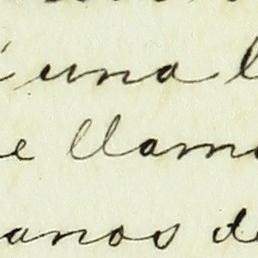 una l
e llama
anos de